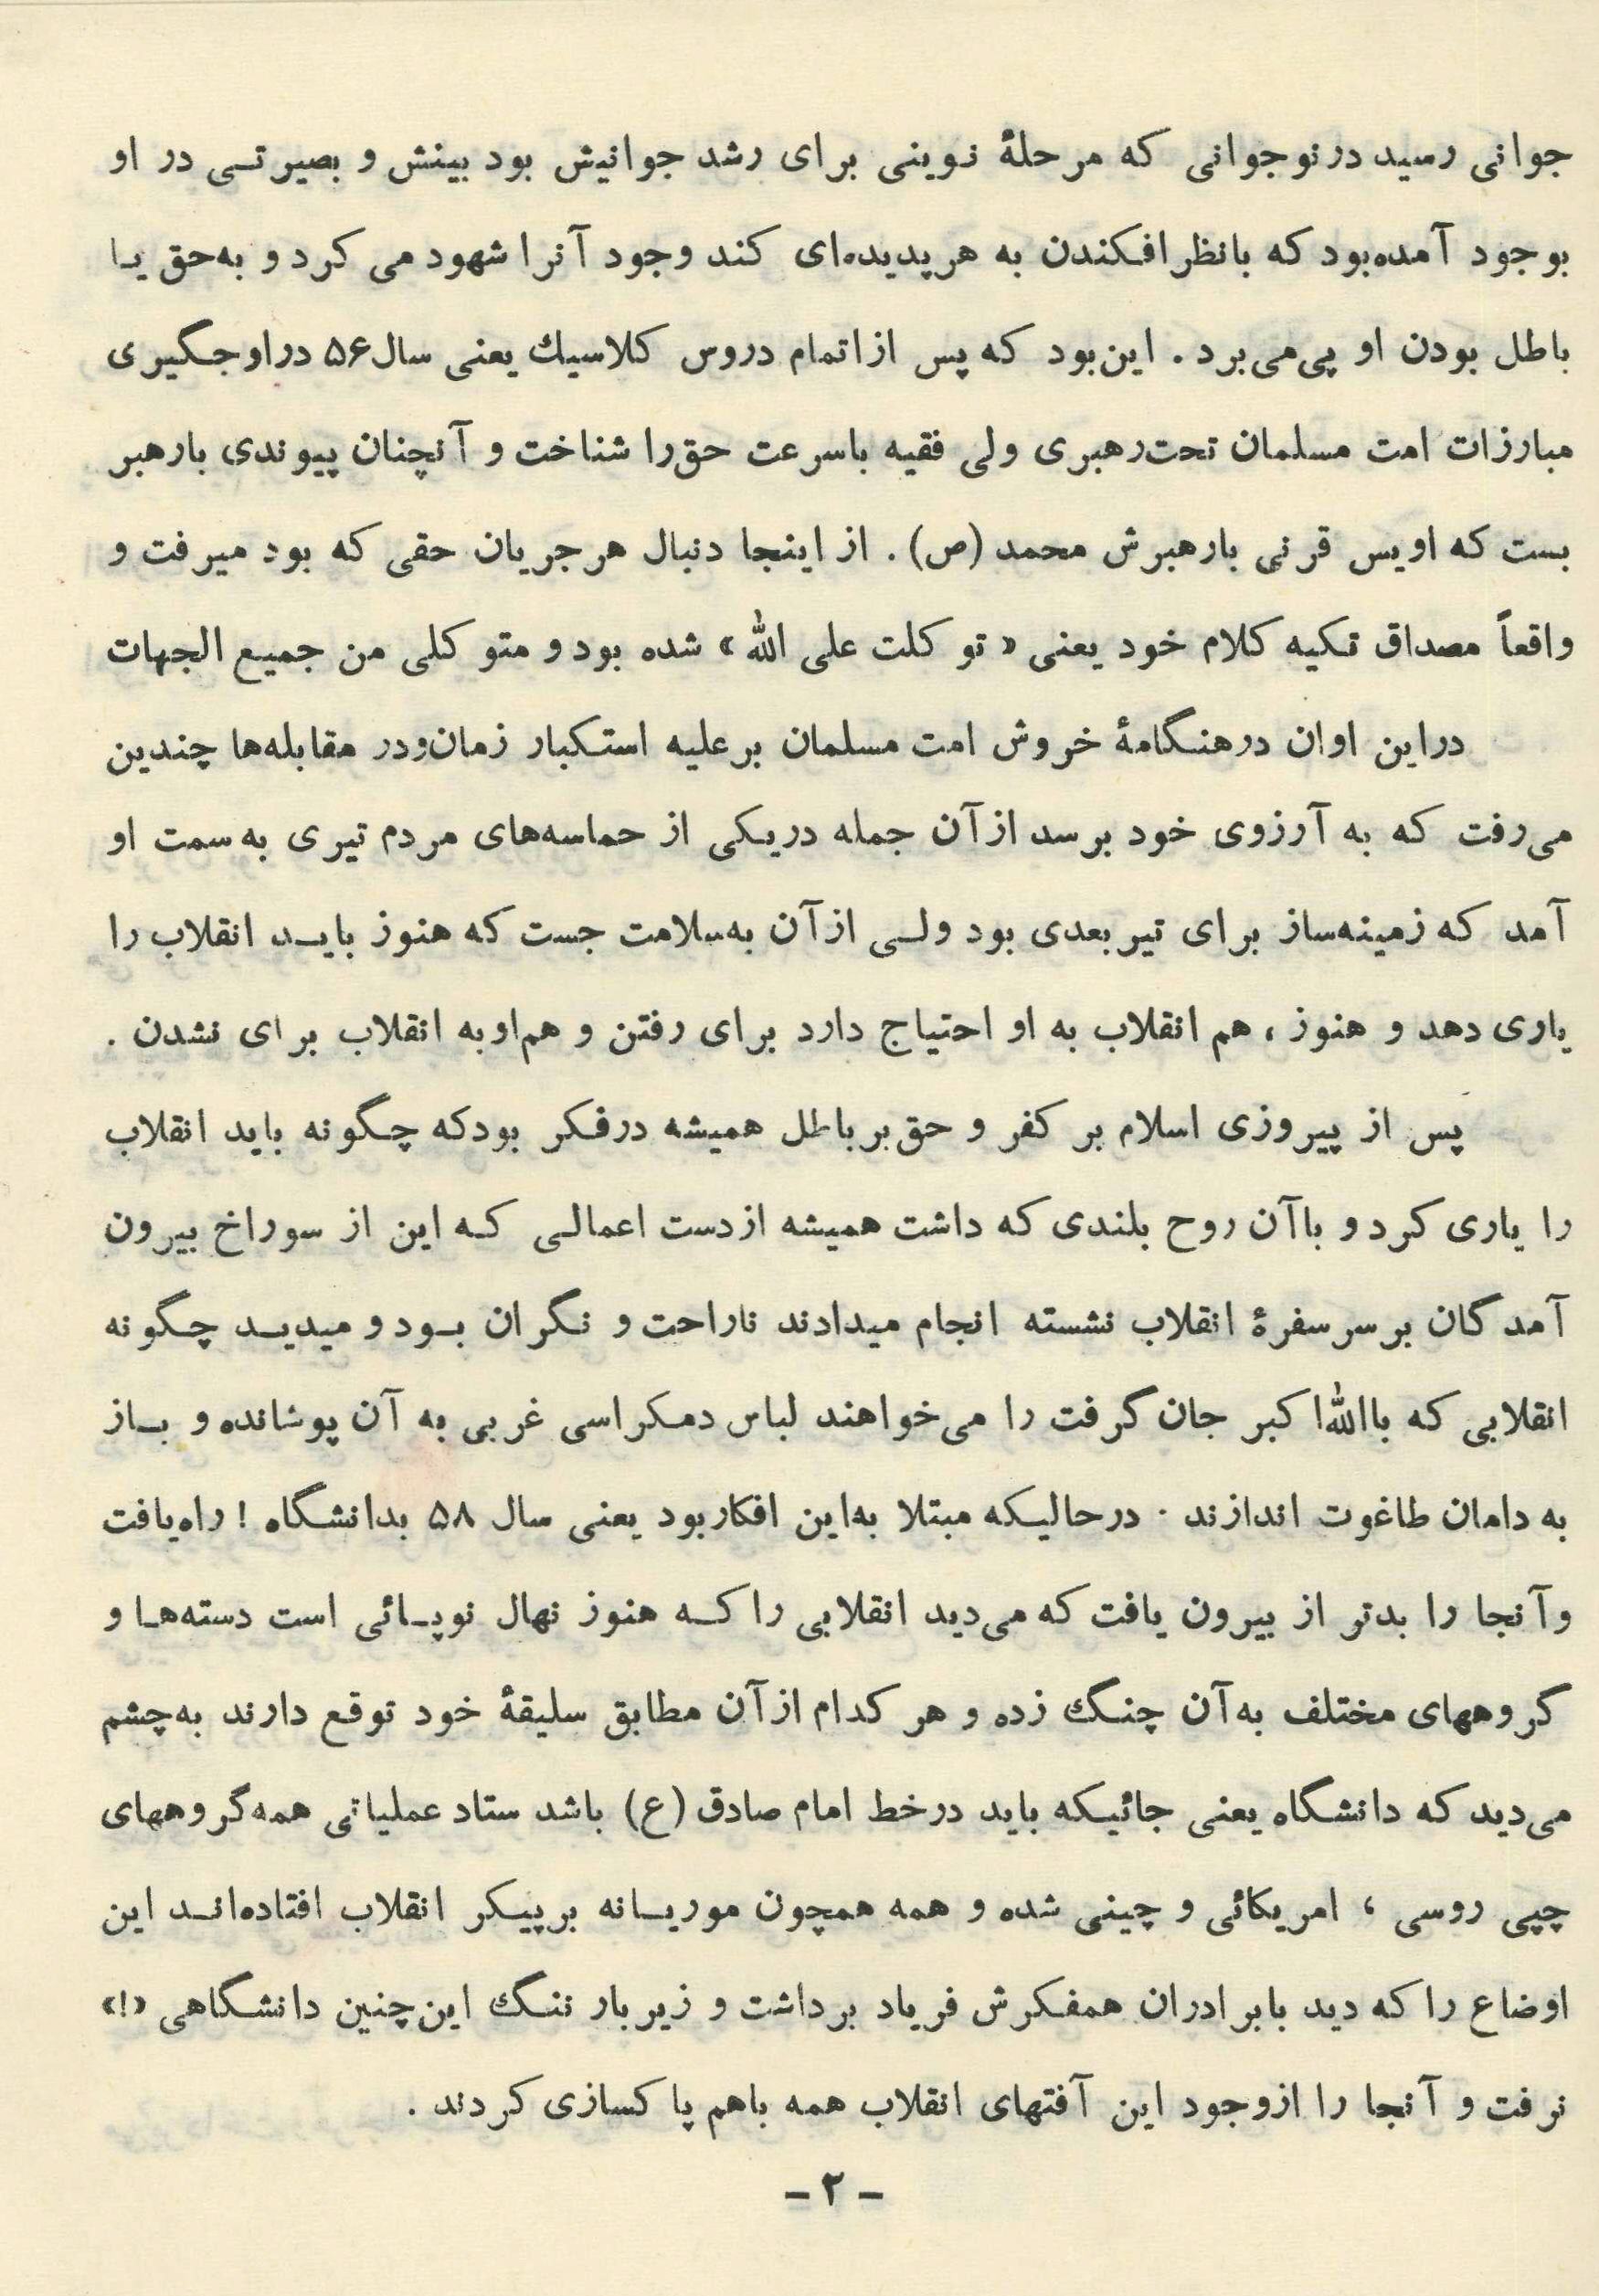 جوانی رسید در نوجوانی که مرحلهٔ نوینی برای رشد جوانیش بود بینش و بصیرتـی در او
بوجود آمده‌بود که بانظر افکندن به هر پدیده‌ای کند وجود آنرا شهود می کرد و به‌حق یـا
باطل بودن او پی‌می‌برد . این‌بود که پس از اتمام دروس کلاسیك یعنی سال ۵۶ در اوجگیری
مبارزات امت مسلمان تحت‌رهبری ولی فقیه باسرعت حق‌را شناخت و آنچنان پیوندی بارهبر
بست که اویس قرنی بارهبرش محمد (ص) . از اینجا دنبال هر جریان حقی که بود میرفت و
واقعاً مصداق تکیه کلام خود یعنی « توکلت علی الله » شده بود و متوکلی من جمیع الجهات
دراین اوان درهنگامهٔ خروش امت مسلمان برعلیه استکبار زمان‌ودر مقابله‌ها چندین
می‌رفت که به آرزوی خود برسد ازآن جمله دریکی از حماسه‌های مردم تیری به‌سمت او
آمد که زمینه‌ساز برای تیر بعدی بود ولـی ازآن به‌سلامت جست که هنوز بایـد انقلاب را
یاری دهد و هنوز ، هم انقلاب به او احتیاج دارد برای رفتن و هم‌اوبه انقلاب برای نشدن .
پس از پیروزی اسلام بر کفر و حق‌بر باطل همیشه درفکر بودکه چگونه باید انقلاب
را یاری کرد و باآن روح بلندی که داشت همیشه ازدست اعمالـی کـه این از سوراخ بیرون
آمدگان برسرسفرهٔ انقلاب نشسته انجام میدادند ناراحت و نگران بـود و میدیـد چگونه
انقلابی که باالله‌اکبر جان گرفت را می‌خواهند لباس دمکراسی غربی به آن پوشانده و بـاز
به دامان طاغوت اندازند . درحالیکه مبتلا به‌این افکاربود یعنی سال ۵۸ بدانشگاه ! راه‌یافت
وآنجا را بدتر از بیرون یافت که می‌دید انقلابی را کـه هنوز نهال نوپـائی است دسته‌هـا و
گروههای مختلف به‌آن چنگ زده و هر کدام ازآن مطابق سلیقهٔ خود توقع دارند به‌چشم
می‌دید که دانشگاه یعنی جائیکه باید درخط امام صادق (ع) باشد ستاد عملیاتی همه‌گروههای
چپی روسی ، امریکائی و چینی شده و همه همچون موریـانه برپیکر انقلاب افتاده‌انـد این
اوضاع را که دید بابرادران همفکرش فریاد برداشت و زیربار ننگ این‌چنین دانشگاهی «!»
نرفت و آنجا را ازوجود این آفتهای انقلاب همه باهم پاکسازی کردند .
– ۲ –